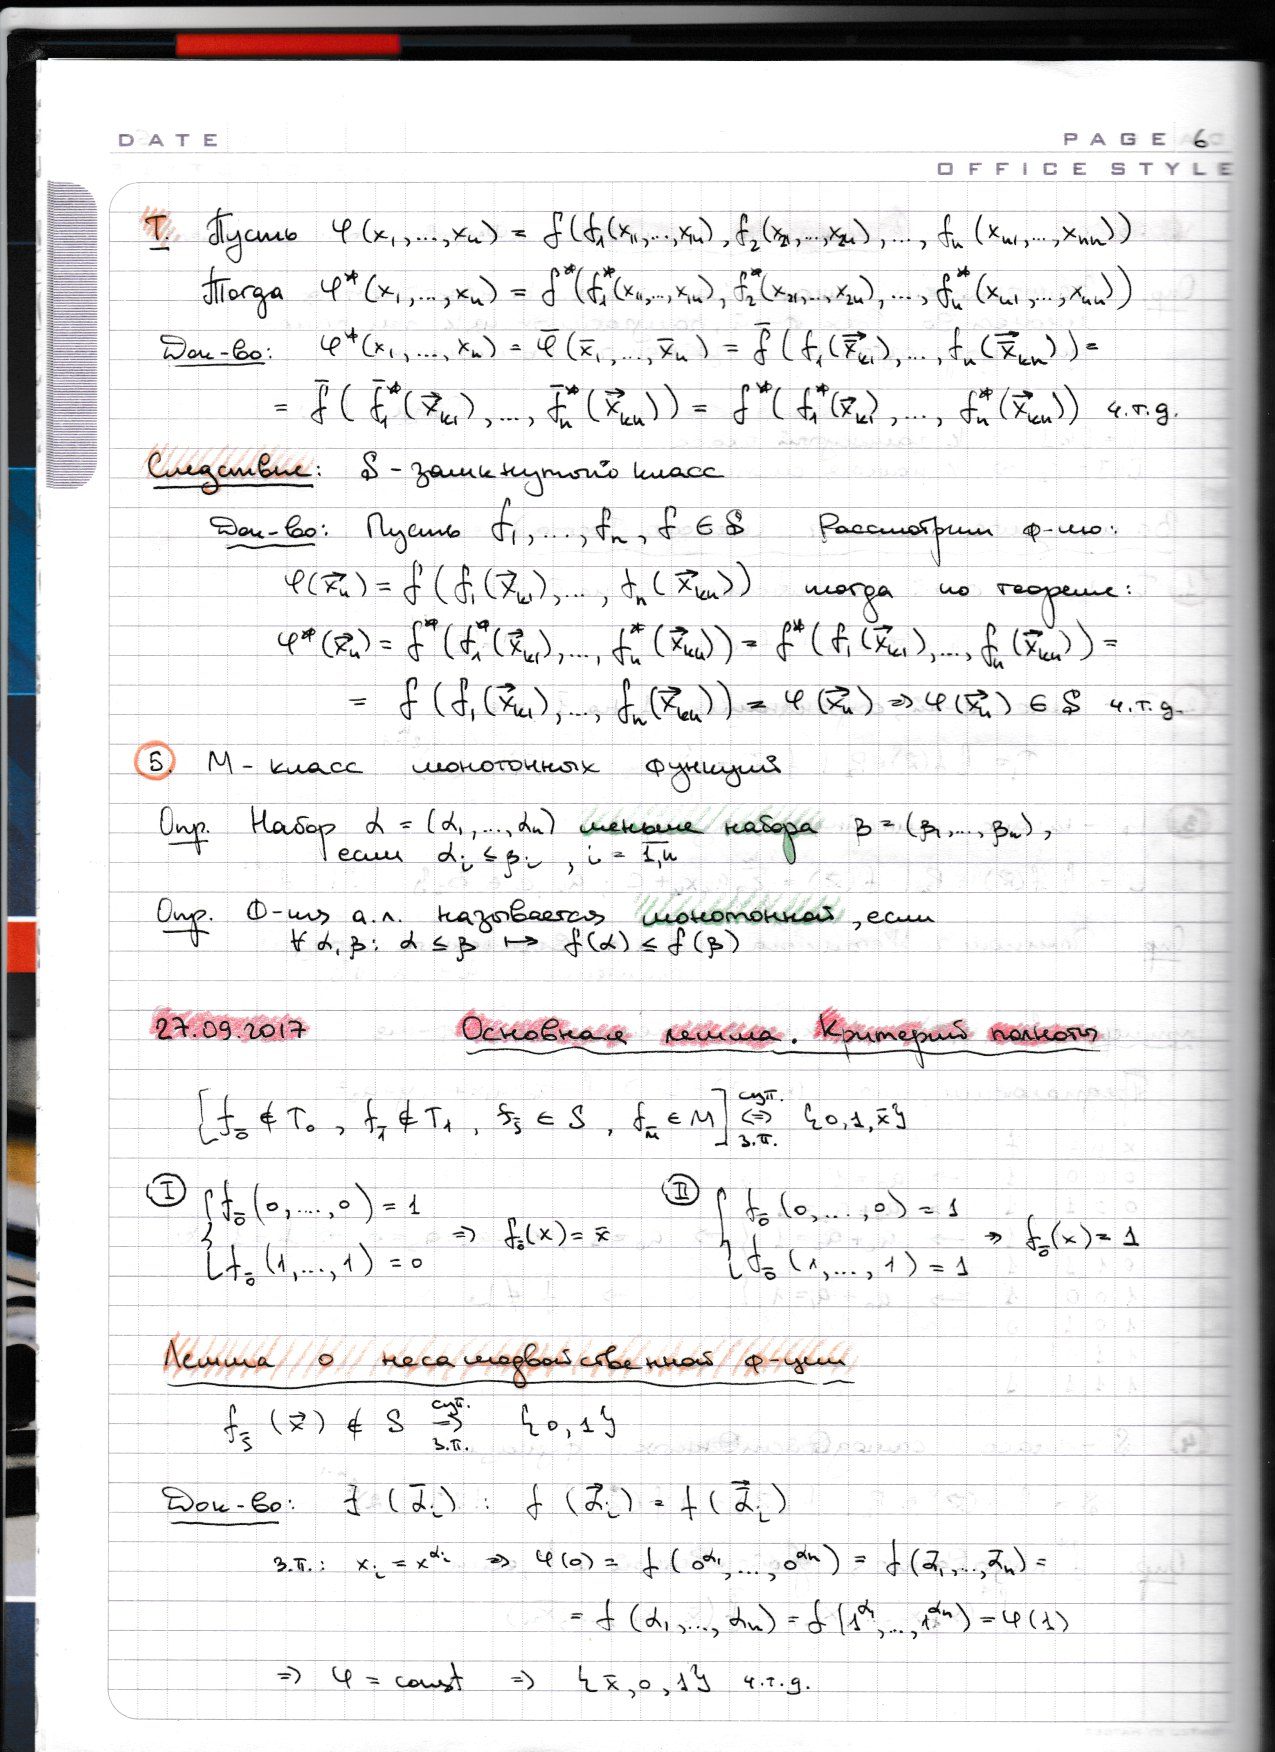 DATE
PAGE 6
OFFICE STYLE
Т. Пусть φ(x₁,...,xₙ) = f(f₁(x₁₁,...,x₁ₙ), f₂(x₂₁,...,x₂ₙ),..., fₙ(xₙ₁,...,xₙₙ))
Тогда φ*(x₁,...,xₙ) = f*(f₁*(x₁₁,...,x₁ₙ), f₂*(x₂₁,...,x₂ₙ),..., fₙ*(xₙ₁,...,xₙₙ))
Док-во: φ*(x₁,...,xₙ) = φ̄(x̄₁,...,x̄ₙ) = f̄(f₁(x̄⃗ₖ₁),..., fₙ(x̄⃗ₖₙ)) =
= f̄(f̄₁*(x⃗ₖ₁),..., f̄ₙ*(x⃗ₖₙ)) = f*(f₁*(x⃗ₖ₁),..., fₙ*(x⃗ₖₙ)) ч.т.д.
Следствие: S - замкнутый класс
Док-во: Пусть f₁,..., fₙ, f ∈ S Рассмотрим ф-ию:
φ(x⃗ₙ) = f(f₁(x⃗ₖ₁),..., fₙ(x⃗ₖₙ)) тогда по теореме:
φ*(x⃗ₙ) = f*(f₁*(x⃗ₖ₁),..., fₙ*(x⃗ₖₙ)) = f*(f₁(x⃗ₖ₁),..., fₙ(x⃗ₖₙ)) =
= f(f₁(x⃗ₖ₁),..., fₙ(x⃗ₖₙ)) = φ(x⃗ₙ) ⇒ φ(x⃗ₙ) ∈ S ч.т.д.
5. M - класс монотонных функций
Опр. Набор α = (α₁,...,αₙ) меньше набора β = (β₁,...,βₙ),
если αᵢ ≤ βᵢ, i = 1,n
Опр. Ф-ия а.л. называется монотонной, если
∀ α, β: α ≤ β ↦ f(α) ≤ f(β)
27.09.2017 Основная лемма. Критерий полноты
[f₀̄ ∉ T₀, f₁̄ ∉ T₁, f_S̄ ∈ S, f_M̄ ∈ M] суп. ⇔ з.п. {0,1,x̄}
I { f₀̄(0,...,0) = 1 II { f₀̄(0,...,0) = 1
⇒ f₀̄(x) = x̄ ⇒ f₀̄(x) = 1
f₀̄(1,...,1) = 0 f₀̄(1,...,1) = 1
Лемма о несамодвойственной ф-ции
f_S̄(x⃗) ∉ S суп. ⇒ з.п. {0,1}
Док-во: ∃ (ᾱᵢ) : f(α⃗ᵢ) = f(ᾱ⃗ᵢ)
з.п.: xᵢ = x^αᵢ ⇒ φ(0) = f(0^α₁,...,0^αₙ) = f(ᾱ₁,...,ᾱₙ) =
= f(α₁,...,αₙ) = f(1^α₁,...,1^αₙ) = φ(1)
⇒ φ = const ⇒ {x̄,0,1} ч.т.д.